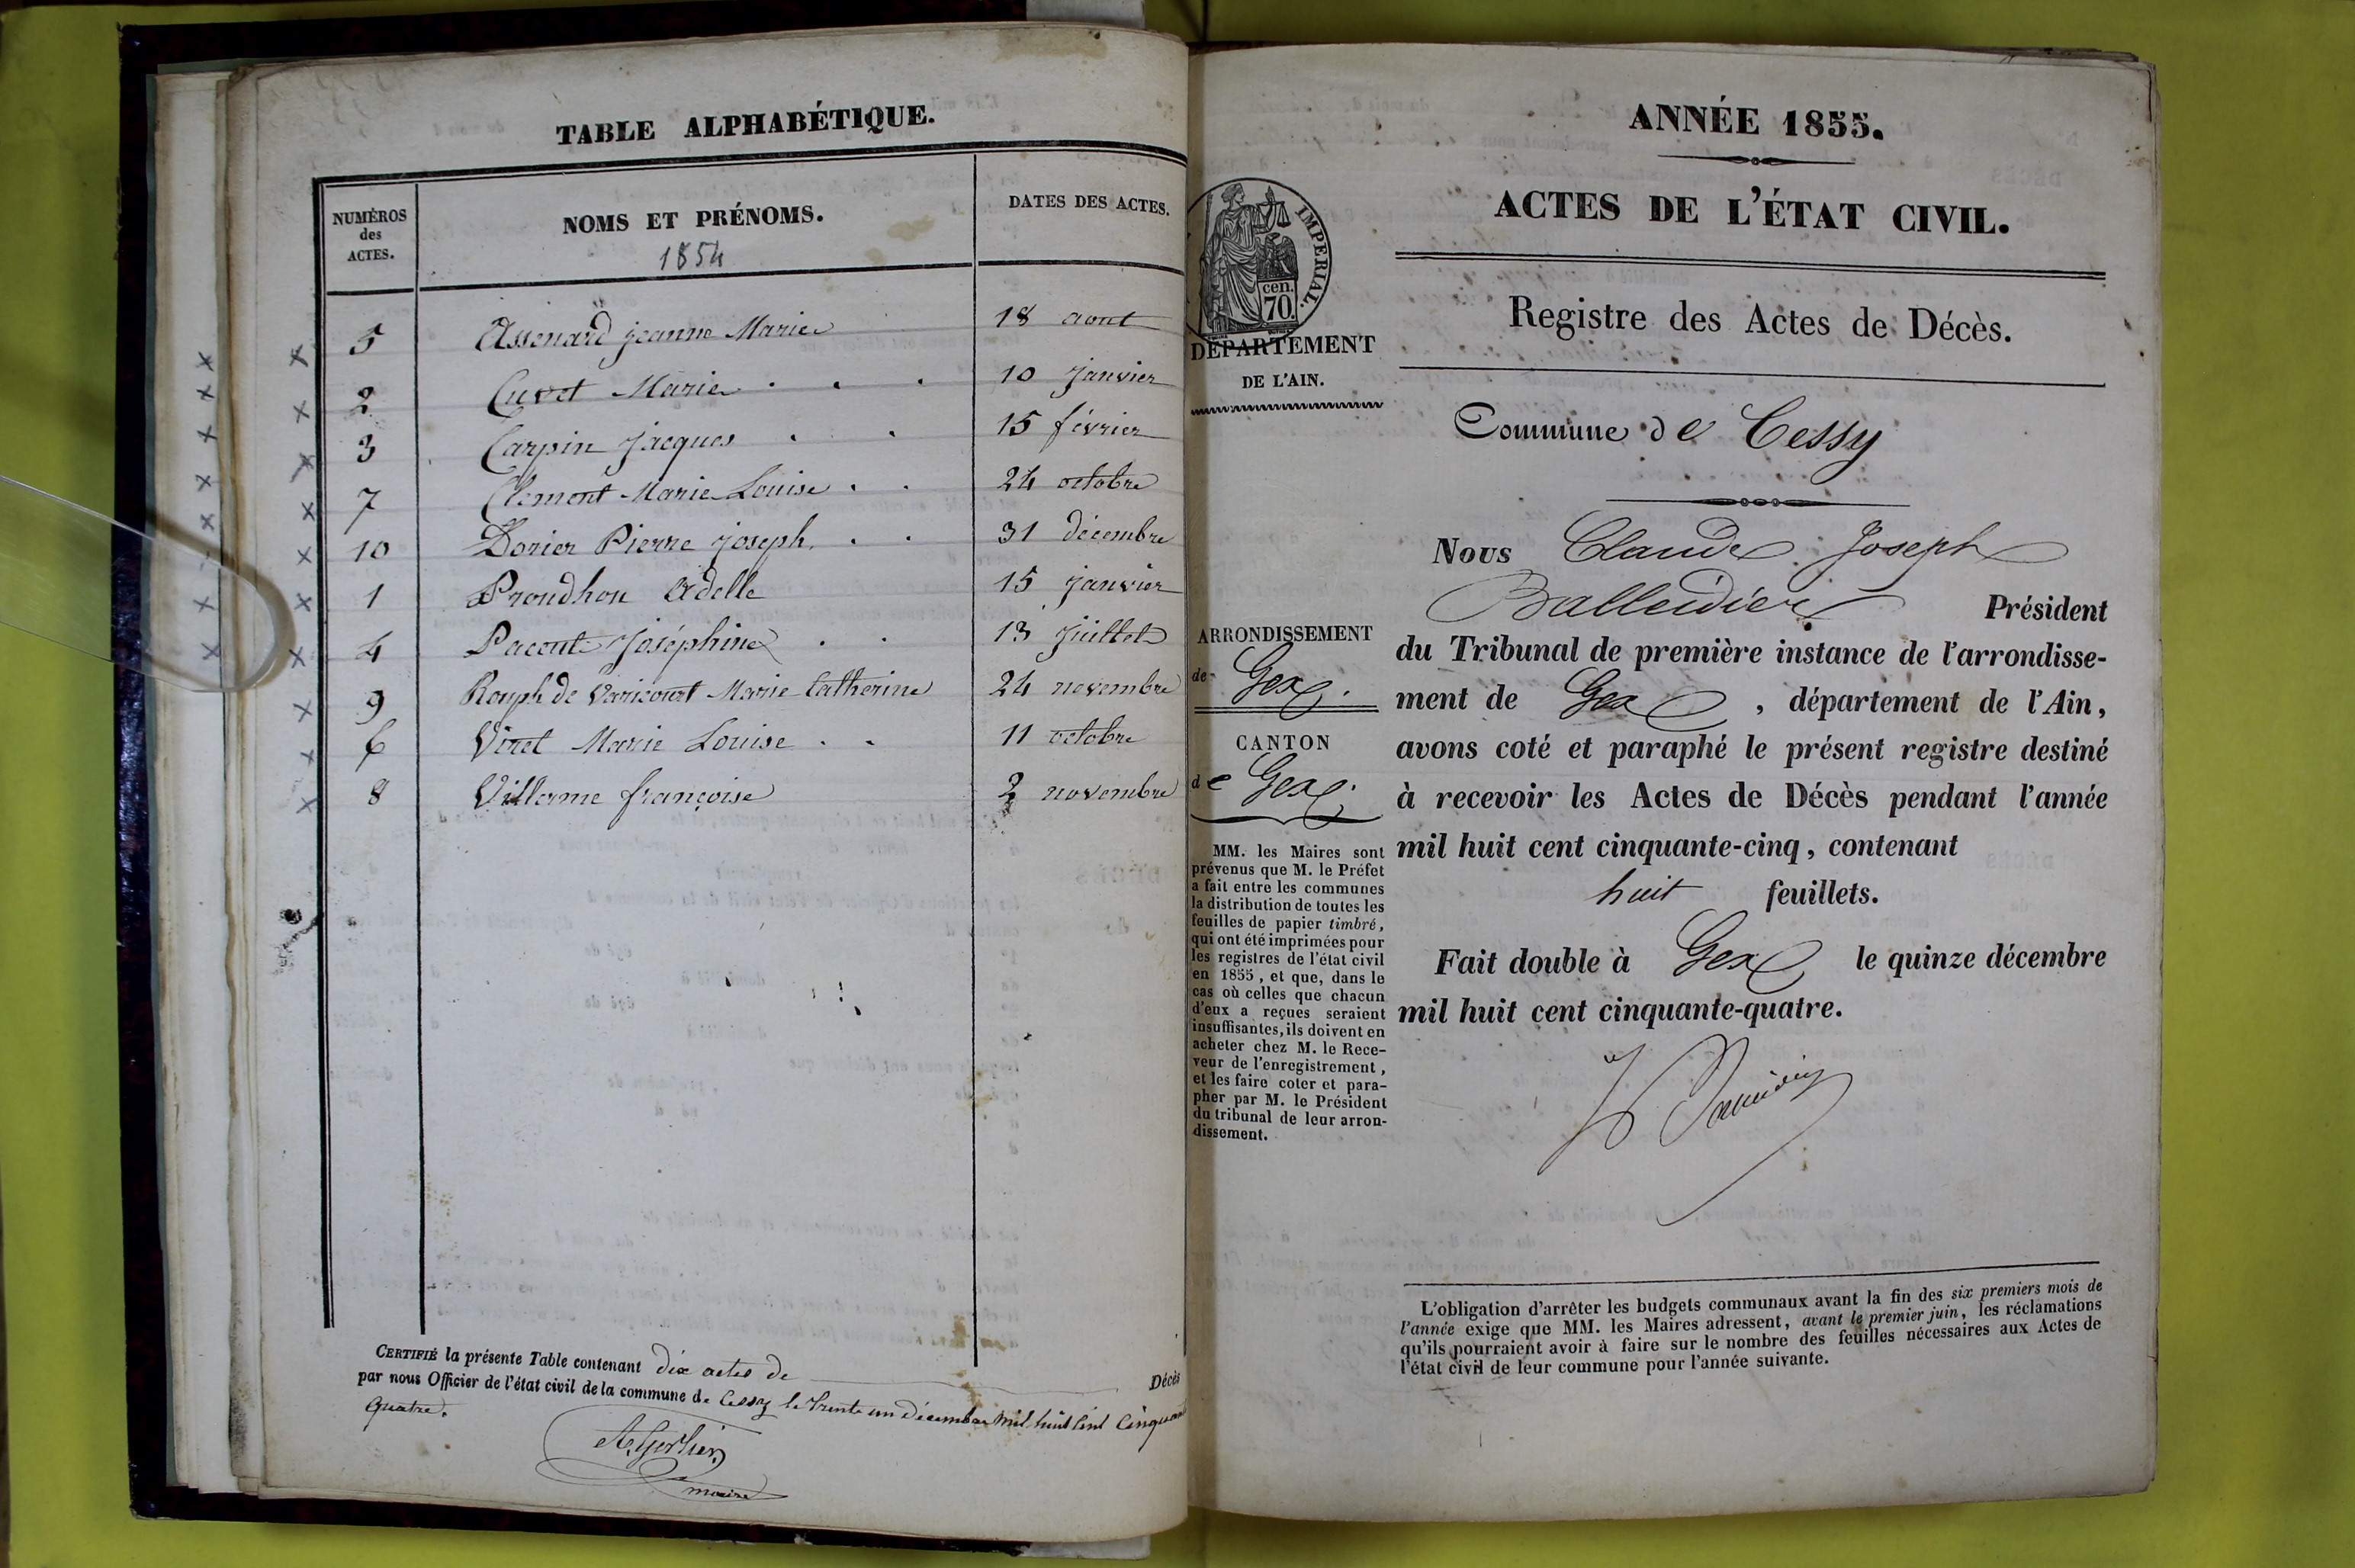 TABLE ALPHABÉTIQUE.
NUMÉROS
des
ACTES.
NOMS ET PRÉNOMS.
1854
DATES DES ACTES.
5 Assenard jeanne Marie 18 aout
2 Curet Marie . . . 10 janvier
3 Carpin Jacques . . 15 février
7 Clement Marie Louise . . 24 octobre
10 Dorier Pierre joseph . . 31 décembre
1 Proudhon Adelle 15 janvier
4 Pacout Joséphine . . 13 juillet
9 Rouph de Varicourt Marie Catherine 24 novembre
6 Viret Marie Louise . . 11 octobre
8 Villerme françoise 2 novembre
CERTIFIÉ la présente Table contenant dix actes de Décès
par nous Officier de l'état civil de la commune de Cessy le trente un décembre mil huit cent cinquante
quatre.
A. Gerlier
maire
ANNÉE 1855.
ACTES DE L'ÉTAT CIVIL.
Registre des Actes de Décès.
IMPERIAL.
cen.
70.
DÉPARTEMENT
DE L'AIN.
ARRONDISSEMENT
de Gex.
CANTON
de Gex.
MM. les Maires sont
prévenus que M. le Préfet
a fait entre les communes
la distribution de toutes les
feuilles de papier timbré,
qui ont été imprimées pour
les registres de l'état civil
en 1855, et que, dans le
cas où celles que chacun
d'eux a reçues seraient
insuffisantes, ils doivent en
acheter chez M. le Rece-
veur de l'enregistrement,
et les faire coter et para-
pher par M. le Président
du tribunal de leur arron-
dissement.
Commune de Cessy
Nous Claude Joseph
Balleidier Président
du Tribunal de première instance de l'arrondisse-
ment de Gex, département de l'Ain,
avons coté et paraphé le présent registre destiné
à recevoir les Actes de Décès pendant l'année
mil huit cent cinquante-cinq, contenant
huit feuillets.
Fait double à Gex le quinze décembre
mil huit cent cinquante-quatre.
L'obligation d'arrêter les budgets communaux avant la fin des six premiers mois de
l'année exige que MM. les Maires adressent, avant le premier juin, les réclamations
qu'ils pourraient avoir à faire sur le nombre des feuilles nécessaires aux Actes de
l'état civil de leur commune pour l'année suivante.